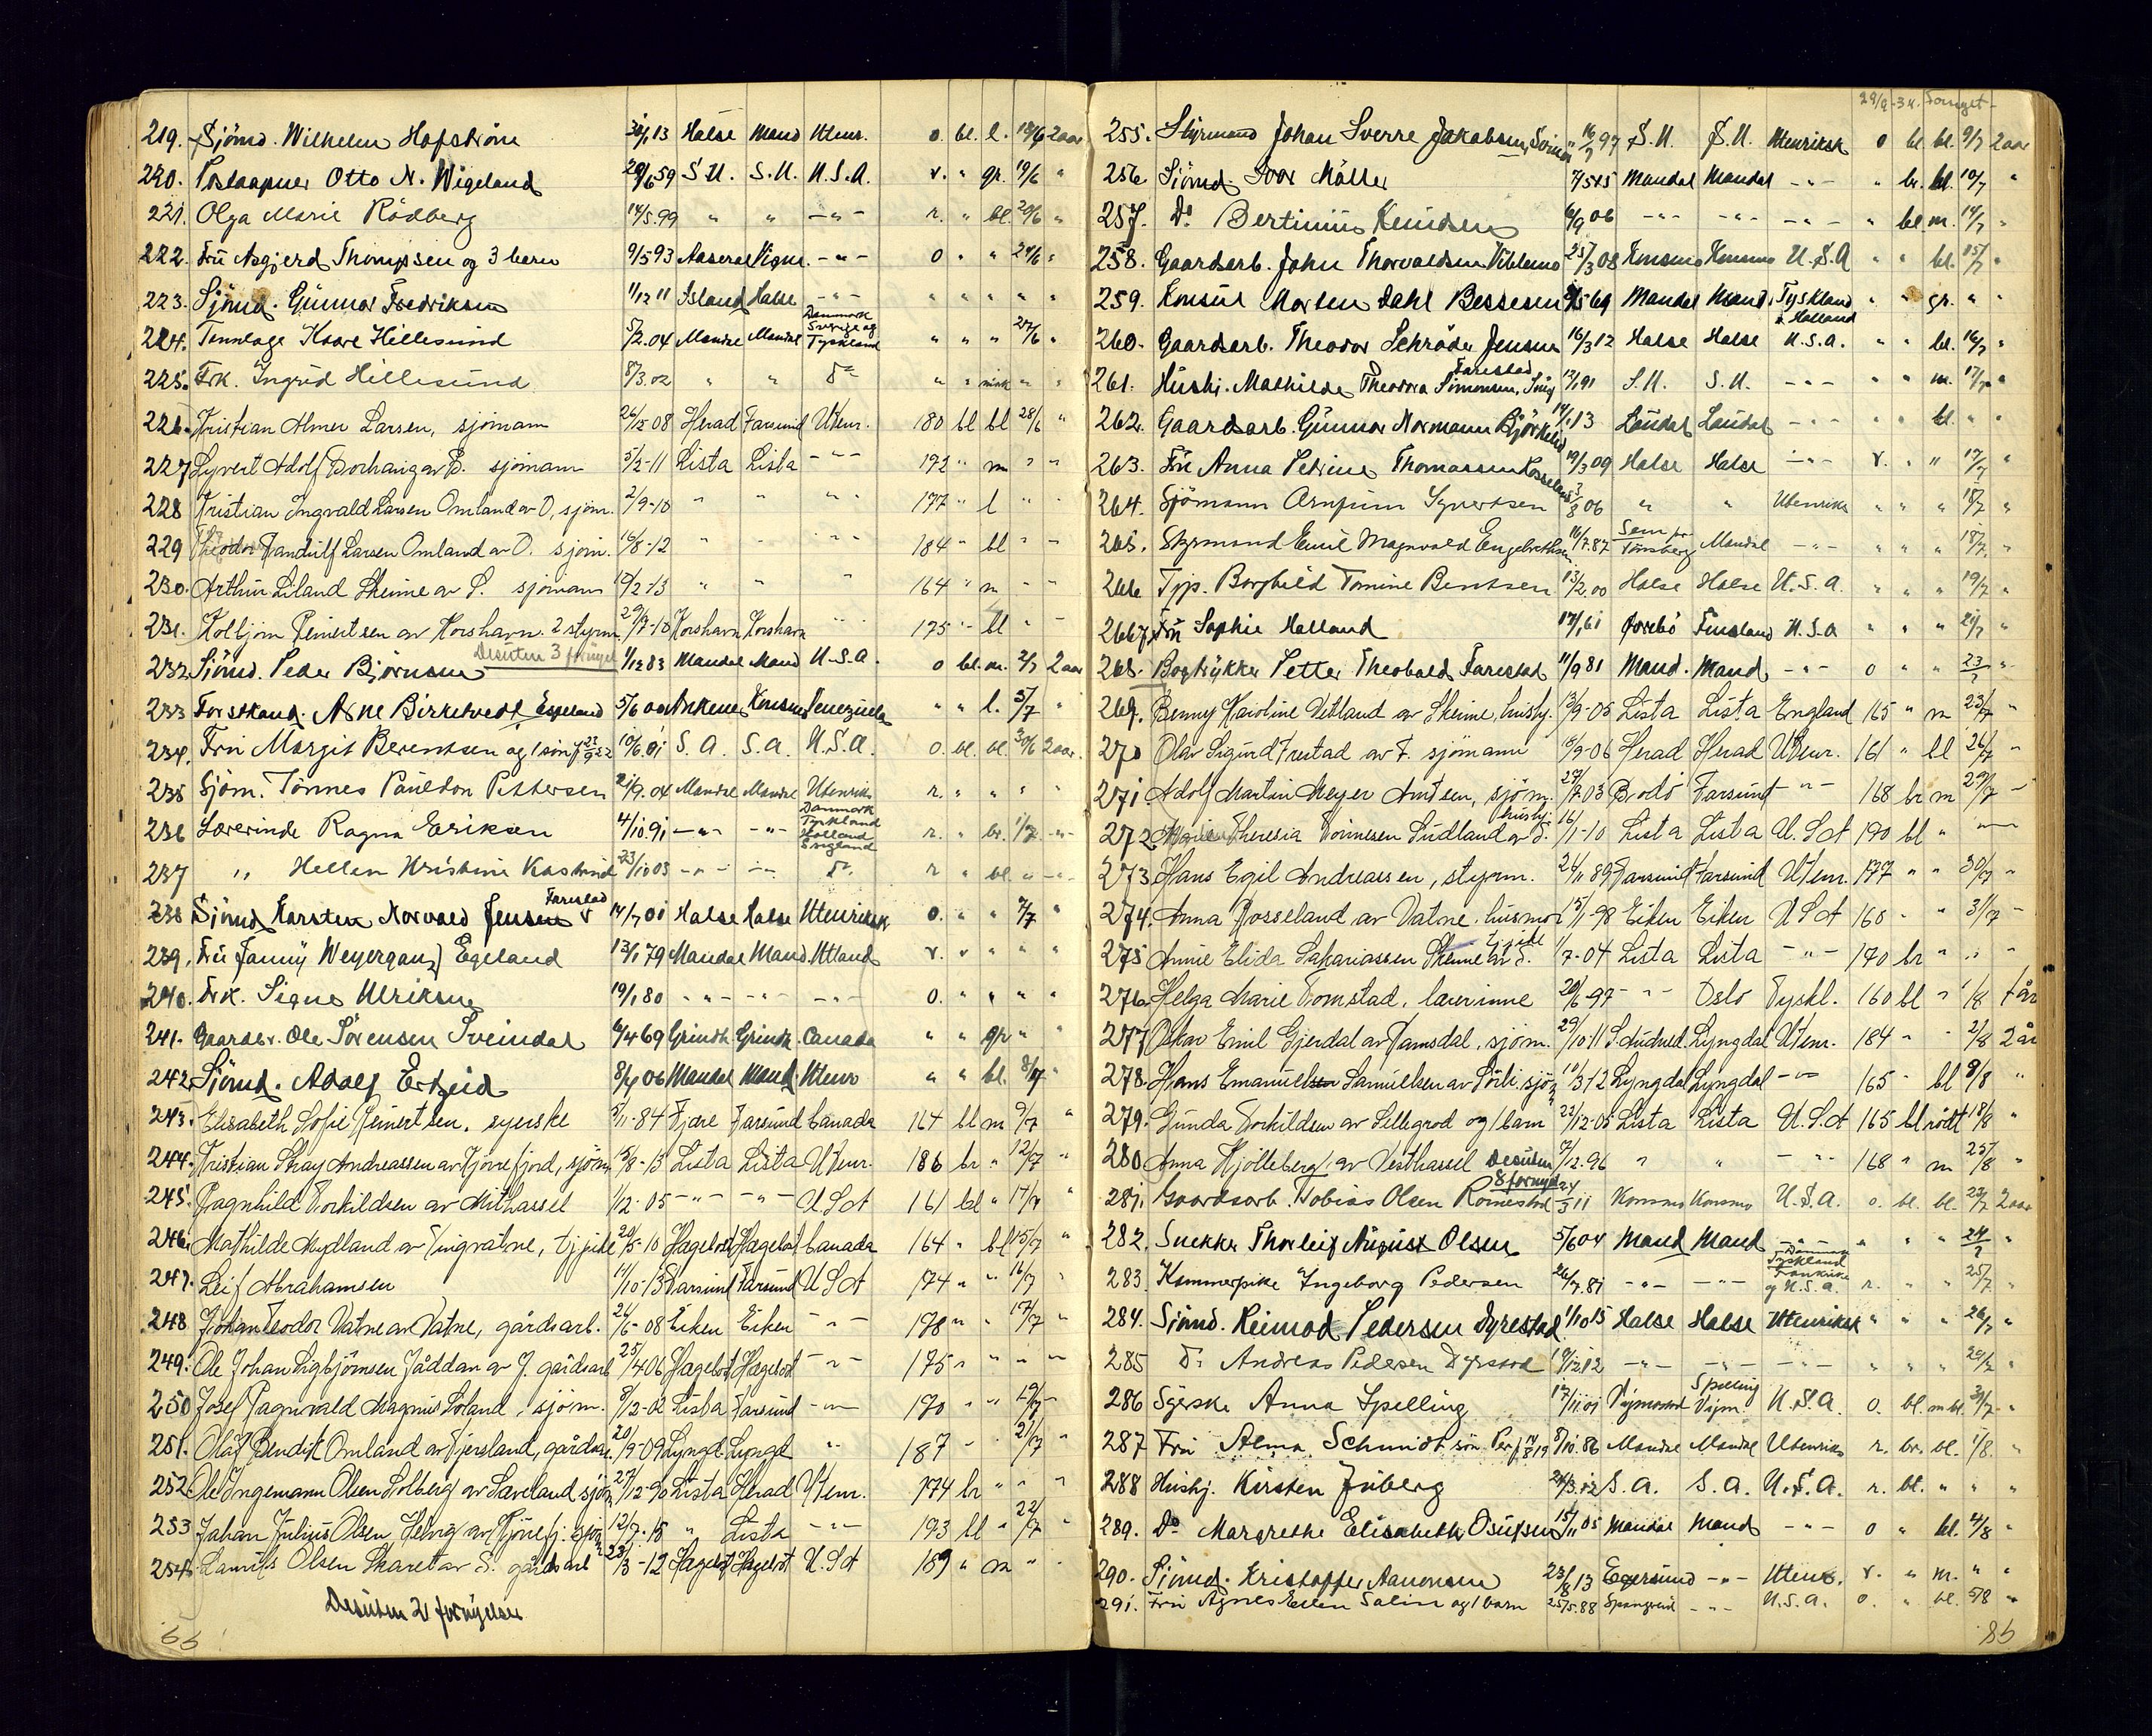 219. Sjömd. Wilhelm Hofström 13 Halse Mand Utenr. o. bl. l. 19/6 2 aar
220. Postaapner Otto N. Wigeland 29/6 59 S.U. S.U. U.S.A. r. " gr. 19/6 "
221. Olga Marie Rödberg 14/5.99 " " -"- r. " bl. 20/6 "
222. Fru Asgjerd Thompsen og 3 barn 9/5 93 Aaseral Vigm. -"- o " " 24/6 "
223. Sjömd. Gunnar Fredriksen 1/12 11 Island Halse -"- " " " " "
Danmark
Sverige og
224. Tannlæge Kaare Hillesund 5/2.04 Mandal Mandal Tyskland " " " 27/6 "
225. Frk. Ingrid Hillesund 8/3.02 " " do " " " "
226. Kristian Almer Larsen, sjömann 26/12 08 Herad Farsund Utenr. 180 bl bl 28/6 "
227 Syvert Adolf av B. sjömann 5/2-11 Lista Lista -"- 192 " m " "
228 Kristian Ingvald Larsen Omland av O, sjöm. 2/9-10 " " " " 177 " l " "
229 Theodor Randulf Larsen Omland av O. sjöm. 16/8-12 " " " " 184 " bl " "
230. Arthur Liland Skeime av S. sjömann 19/2-13 " " " 164 " m " "
231. Kolbjörn Reinertsen av Korshavn. 2 styrm. 29/7-10 Korshavn Korshavn " " 175 " bl " "
Desuten 3 fornyel
232 Sjömd. Peder Björnsen 1/12 83 Mandal Mand U.S.A. o bl. m. 2/7 2 aar
233 Forstkand. Arne Birketvedt Espeland 5/6 00 Konsmo Venezuela " " l. 5/7 "
234. Fru Margit Berentsen og 1 sön 19/6.01 S.A. S.A. U.S.A. o. bl. bl. 30/6 2 aar.
235 Sjöm. Tönnes Pauldon Pettersen 21/9.04 Mandal Mandal Utenriks r. " " " "
Danmark
Tyskland
236 Lærerinde Ragna Eriksen 4/10.91 -"- -"- Holland r. " br. 1/7 -"-
England
237 " Hellen Kristine Kastrud 23/10 03 -"- -"- do r " bl. " -"-
Farestad
238 Sjömd Karsten Norvald Jensen 14/7 01 Halse Halse Utenriksk o. " " 7/7 "
239. Fru Fanny Weyergang Egeland 13/1 79 Mandal Mand. Utland r. " " " "
240. Frk. Signe Ulriksen 19/1 80 -"- -"- -"- o. " " " "
241. Gaardbr. Ole Sörensen Sveindal 6/4 69 Grindh. Grindh. Canada " " gr " "
242 Sjömd. Adolf Ertzeid 8/4 06 Mandal Mand Utenr " " bl. 8/7 "
243. Elisabeth Sofie Reinertsen, syerske 5/11-84 Fjære Farsund Canada 164 bl m 9/7 "
244. Kristian Stray Andreassen av Kjörrefjord, sjöm 15/8-13 Lista Lista Utenr. 186 br " 12/7 "
245. Ragnhild Torkildsen av Midthassel 1/12-05 -"- -"- U S A 161 bl " 14/7 "
246. Mathilde Mydland av Tingvatne, tj.pike 21/5-10 Hægebost Hægebost Canada 164 " bl 15/7 "
247. Leif Abrahamsen 11/10-13 Farsund Farsund U S A 174 " " 16/7 "
248 Johan Teodor Vatne av Vatne, gårdsarb. 21/6-08 Eiken Eiken -"- 178 " " 17/7 "
249. Ole Johan Sigbjörnsen Jåddan av J. gårdsarb 25/4 06 Hægebost Hægebost -"- 175 " " " "
250 Josef Ragnvald Magnus Loland, sjöm. 8/12-02 Lista Farsund -"- 170 " " 19/7 "
251. Olaf Bendik Omland av Fjersland, gårdsar. 20/9-09 Lyngd. Lyngd " 187 " " 21/7 "
252 Ole Ingemann Olsen Solberg av Læveland sjöm 27/12-90 Lista Herad Utenr. 174 br " " "
253 Johan Julius Olsen Helvig av Kjörrefj. sjöm 12/7-15 " Lista -"- 193 bl " 22/7 "
254. Laurits Olsen Skaret av S. gårdsarb 23/3-12 Hægebost Hægebost U.S.A 189 " m " "
Desuten 21 fornyelser
29/9-34. Fornyet
255. Styrmand Johan Sverre Jakobsen, Svinör 16/7 97 S.U. S.U. Utenriksk o bl bl. 9/7 2 aar
256. Sjömd. Ivar Möller Mandal Mandal -"- " br. bl. 10/7 "
257. Do Bertinius Knudsen 6/9 06 -"- -"- -"- " bl. m. 14/7 "
258. Gaardsarb. John Thorvaldsen Viblemo 25/3 08 Konsmo Konsmo U.S.A " " bl. 15/7 "
259. Konsul Morten Dahl Bessesen 69 Mandal Mand. Tyskland " " gr. " "
& Holland
260. Gaardsarb. Theodor Schröder Jensen 16/3 12 Halse Halse U.S.A. " " bl. 16/7 "
Farestad
261. Hushj. Mathilde Theodora Simonsen, 12/1 91 S.U. S.U. -"- " " m. 17/7 "
262. Gaardsarb. Gunnar Normann Björkelid 14/1 13 Laudal Laudal -"- " " bl. " "
263. Fru Anna Petrine Thomassen Kosseland 19/3 09 Halse Halse -"- r. " " 17/7 "
264. Sjömann Arnfinn Syvertsen 3/8 06 " " Utenriks " " " 18/7 "
265. Styrmand Emil Magnvald Engebrethsen 16/7.87 Sem pr Tönsberg Mandal -"- " " " 18/7 "
266. Typ. Borghild Tomine Bentsen 13/2.00 Halse Halse U.S.A. " " " 19/7 "
267 Fru Sophie Halland 17/1 61 Övrebö Finsland U.S.A " " " 21/7 "
268. Bogtrykker Petter Theobald Farestad 11/9 81 Mand. Mand. -"- o " " 23/7 "
269. Benny Karoline Vetland av Skeime, hushj. 13/9-05 Lista Lista England 165 " m 23/7 "
270 Olav Sigurd Frestad av F. sjömann 6/9-06 Herad Herad Utenr. 161 " bl 26/7 "
271 Adolf Martin Meyer Arntsen, sjöm. 29/7-03 Bodö Farsund -"- 168 br m 29/7 "
hushj.
272 Marie Theresia Tönnesen Sudland av S. 16/1-10 Lista Lista U.S.A 170 bl " -"-
273 Hans Egil Andreassen, styrm. 24/11 89 Farsund Farsund Utenr. 177 " " 30/7 "
274. Anna Rosseland av Vatne. husmor 15/11-98 Eiken Eiken U S A 160 " " 31/7 "
tj.pike
275 Annie Elida Sakariassen Skeime av S. 1/7-04 Lista Lista -"- 170 br " " "
276. Helga Marie Tomstad, lærerinne 20/6-97 -"- Oslo Tyskl. 160 bl " 1/8 1 år
277 Oskar Emil Gjerdal av Ramsdal, sjöm. 29/10.11 S.Audned. Lyngdal Utenr. 184 " " 2/8 2 år
278. Hans Emanuel Samuelsen av Sörli. sjöm 10/3 12 Lyngdal Lyngdal -"- 165 " bl 9/8 "
279. Gunda Torkildsen av Sellegrod og 1 barn 22/12-05 Lista Lista U.S.A 165 bl rödt 18/8 "
280 Anna Kjölleberg av Vesthassel Desuten 8 fornyel 17/12.96 " " -"- 168 " m 25/8 "
281. Gaardsarb. Tobias Olsen Romestad 24/3 11 Konsmo Konsmo U.S.A. o. bl. bl. 23/7 2 aar
282. Snekker Thorleif August Olsen 5/6 04 Mand Mand -"- " " " 24/7 "
Danmark
Tyskland
Frankrike
283. Kammerpike Ingeborg Pedersen 26/7.81 -"- -"- og U.S.A. r. " " 25/7 "
284. Sjömd. Reimod Pedersen Dyrestad 1/10 15 Halse Halse Utenriksk " " " 26/7 "
285 Do Andreas Pedersen Dyrstad 19/12 12 -"- -"- -"- " " " 29/7 "
Spelling
286 Syerske Anna Spelling 17/11.01 Öyimostad Vigm U.S.A. o. bl. m bl. 31/7 "
287 Fru Alma Schmidt sön Per 8/10.86 Mandal Mandal Utenriks r. br. bl. 1/8. "
288 Hushj. Kirsten Juberg 24/3.12 S.A. S.A. U.S.A. r. bl. " " "
289. Do Margrethe Elisabeth Osufsen 15/11 05 Mandal Mand -"- o " bl. 4/8 "
290. Sjömd. Kristoffer Aanensen 23/8 13 Egersund -"- Utenr. r. " m. " "
291. Fru Agnes Ellen Salin og 1 barn 25/5.88 Spangereid -"- U.S.A. o. " bl. 5/8 "